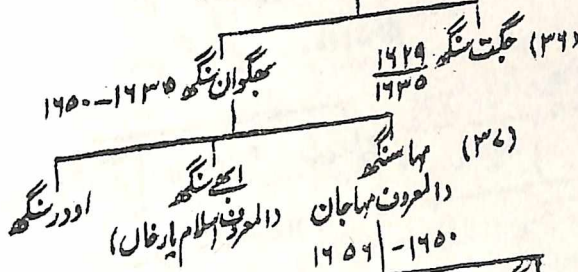 (۳۶) جگت سنگھ ۱۶۲۹
۱۶۳۵
بھگوان سنگھ ۱۶۳۵–۱۶۵۰
(۳۷) مہا سنگھ
والمعروف مہاجان
۱۶۵۰–۱۶۵۶
ابھے سنگھ
والمعروف اسلام یار خاں)
اودر سنگھ